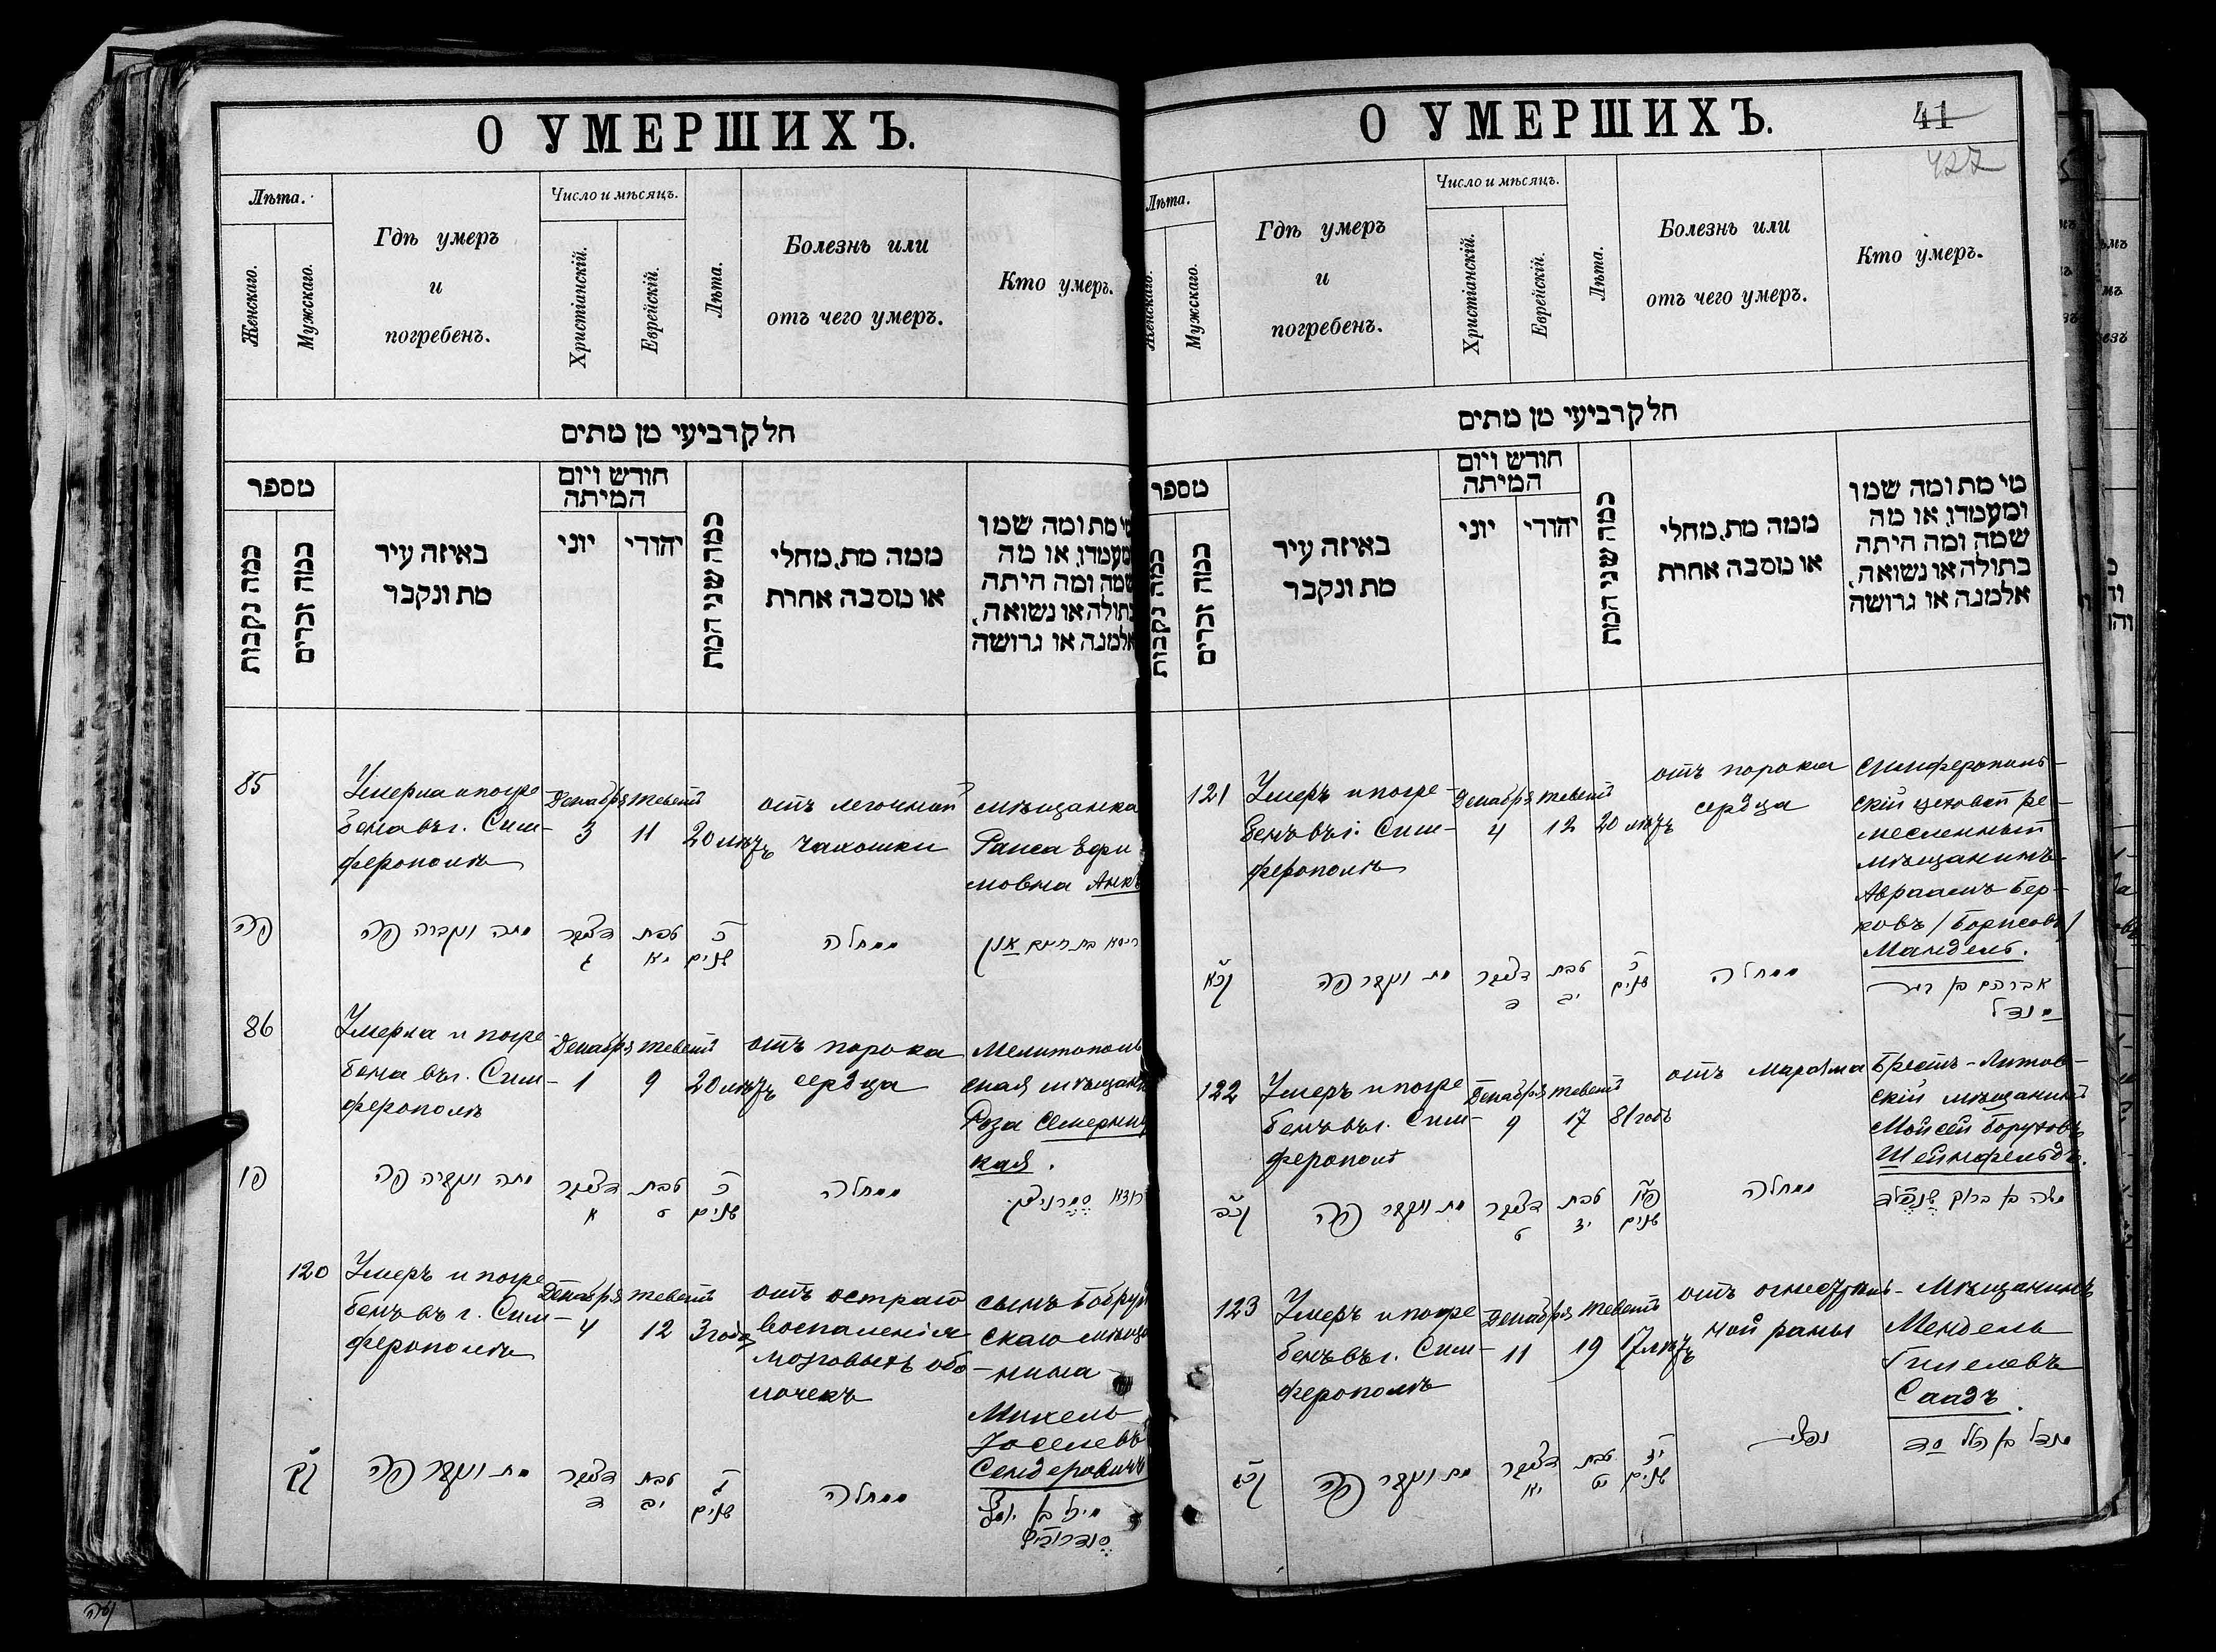 О УМЕРШИХЪ.
Лѣта.
Женскаго.
Мужскаго.
Гдѣ умеръ
и
погребенъ.
Число и мѣсяцъ.
Христіанскій.
Еврейскій.
Лѣта.
Болезнь или
отъ чего умеръ.
Кто умеръ.
חלק רביעי מן מתים
מספר
כמה נקבות
כמה זכרים
באיזה עיר
מת ונקבר
חודש ויום
המיתה
יוני
יהודי
כמה שני המת
ממה מת, מחלי
או מסבה אחרת
מי מת ומה שמו
ומעמדו, או מה
שמה ומה היתה
בתולה או נשואה,
אלמנה או גרושה
85
Умерла и погре
бена въ г. Сим-
ферополѣ
Декабря
3
теветъ
11
20 лѣтъ
отъ легочной
чахотки
мѣщанка
Раиса Ефи
мовна
פה
מתה ונקברה פה
דצמבר
ג
טבת
יא
כ
שנים
ממחלה
86
Умерла и погре
бена въ г. Сим-
ферополѣ
Декабря
1
теветъ
9
20 лѣтъ
отъ порока
сердца
Мелитополь
ская мѣщанка
Роза
кая.
פו
מתה ונקברה פה
דצמבר
א
טבת
ט
כ
שנים
ממחלה
120
Умеръ и погре
бенъ въ г. Сим-
ферополѣ
Декабря
4
теветъ
12
3 года
отъ остраго
воспаленія
мозговыхъ обо-
лочекъ
сынъ Бобруй
скаго мѣща
нина
Михель
Іоселевъ
Сендеровичъ
קכ
מת ונקבר פה
דצמבר
ד
טבת
יב
ג
שנים
ממחלה
סנדרוביץ
О УМЕРШИХЪ.
41
427
Лѣта.
Женскаго.
Мужскаго.
Гдѣ умеръ
и
погребенъ.
Число и мѣсяцъ.
Христіанскій.
Еврейскій.
Лѣта.
Болезнь или
отъ чего умеръ.
Кто умеръ.
חלק רביעי מן מתים
מספר
כמה נקבות
כמה זכרים
באיזה עיר
מת ונקבר
חודש ויום
המיתה
יוני
יהודי
כמה שני המת
ממה מת, מחלי
או מסבה אחרת
מי מת ומה שמו
ומעמדו, או מה
שמה ומה היתה
בתולה או נשואה,
אלמנה או גרושה
121
Умеръ и погре-
бенъ въ г. Сим-
ферополѣ
Декабря
4
теветъ
12
20 лѣтъ
отъ порока
сердца
Симферополь-
скій цеховой ре-
месленный
мѣщанинъ
Авраамъ Бер-
ковъ /Борисовъ/
Мандель.
קכא
מת ונקבר פה
דצמבר
ד
טבת
יב
כ
שנים
ממחלה
אברהם בן
מנדל
122
Умеръ и погре
бенъ въ г. Сим-
ферополѣ
Декабря
9
теветъ
17
81 годъ
отъ маразма
Брестъ-Литов-
скій мѣщанинъ
Мойсей Боруховъ
Шейнфельдъ.
קכב
מת ונקבר פה
דצמבר
ט
טבת
יז
פא
שנים
ממחלה
משה בן ברוך שנפלד
123
Умеръ и погре
бенъ въ г. Сим-
ферополѣ
Декабря
11
теветъ
19
17 лѣтъ
отъ огнестрѣль-
ной раны
Мѣщанинъ
Мендель
Гилелевъ
Саадъ.
קכג
מת ונקבר פה
דצמבר
יא
טבת
יט
יז
שנים
מנדל בן הלל סד